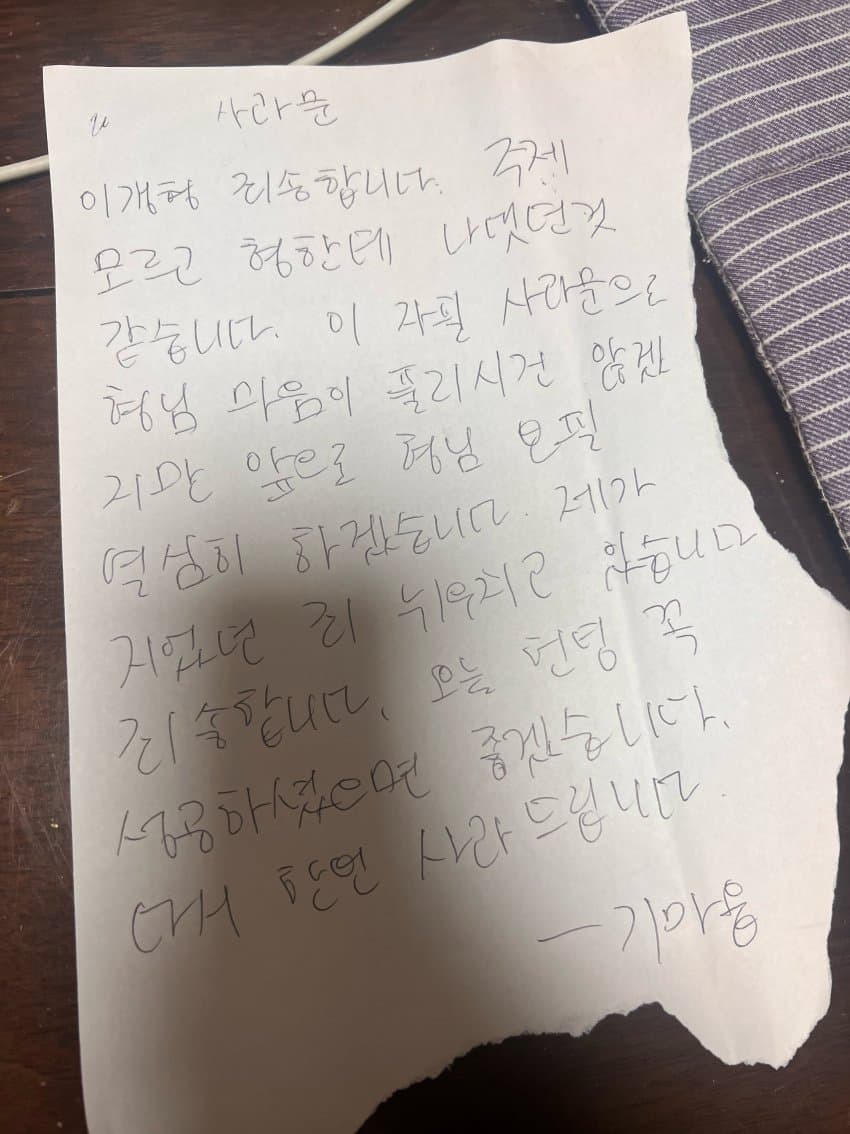 사과문
이갱형 죄송합니다. 주젤
모르고 형한테 나댓던것
같습니다. 이 자필 사과문으로
형님 마음이 풀리시건 않겠
지만 앞으로 형님 보필
열심히 하겠습니다. 제가
지었던 죄 뉘우치고 있습니다
죄송합니다. 오늘 헌팅 꼭
성공하셨으면 좋겠습니다.
다시 한번 사과드립니다.
ㅡ기마웅